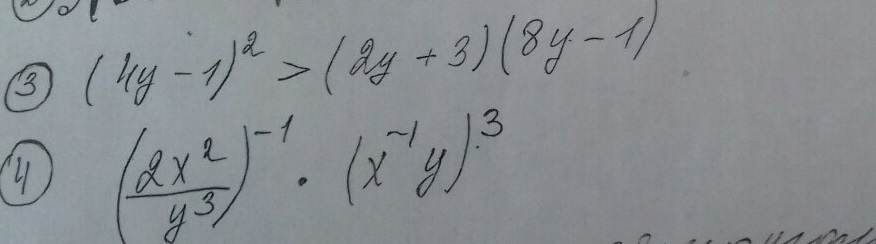 ③ (4y - 1)² > (2y + 3)(8y - 1)
④ (2x²/y³)⁻¹ · (x⁻¹y)³